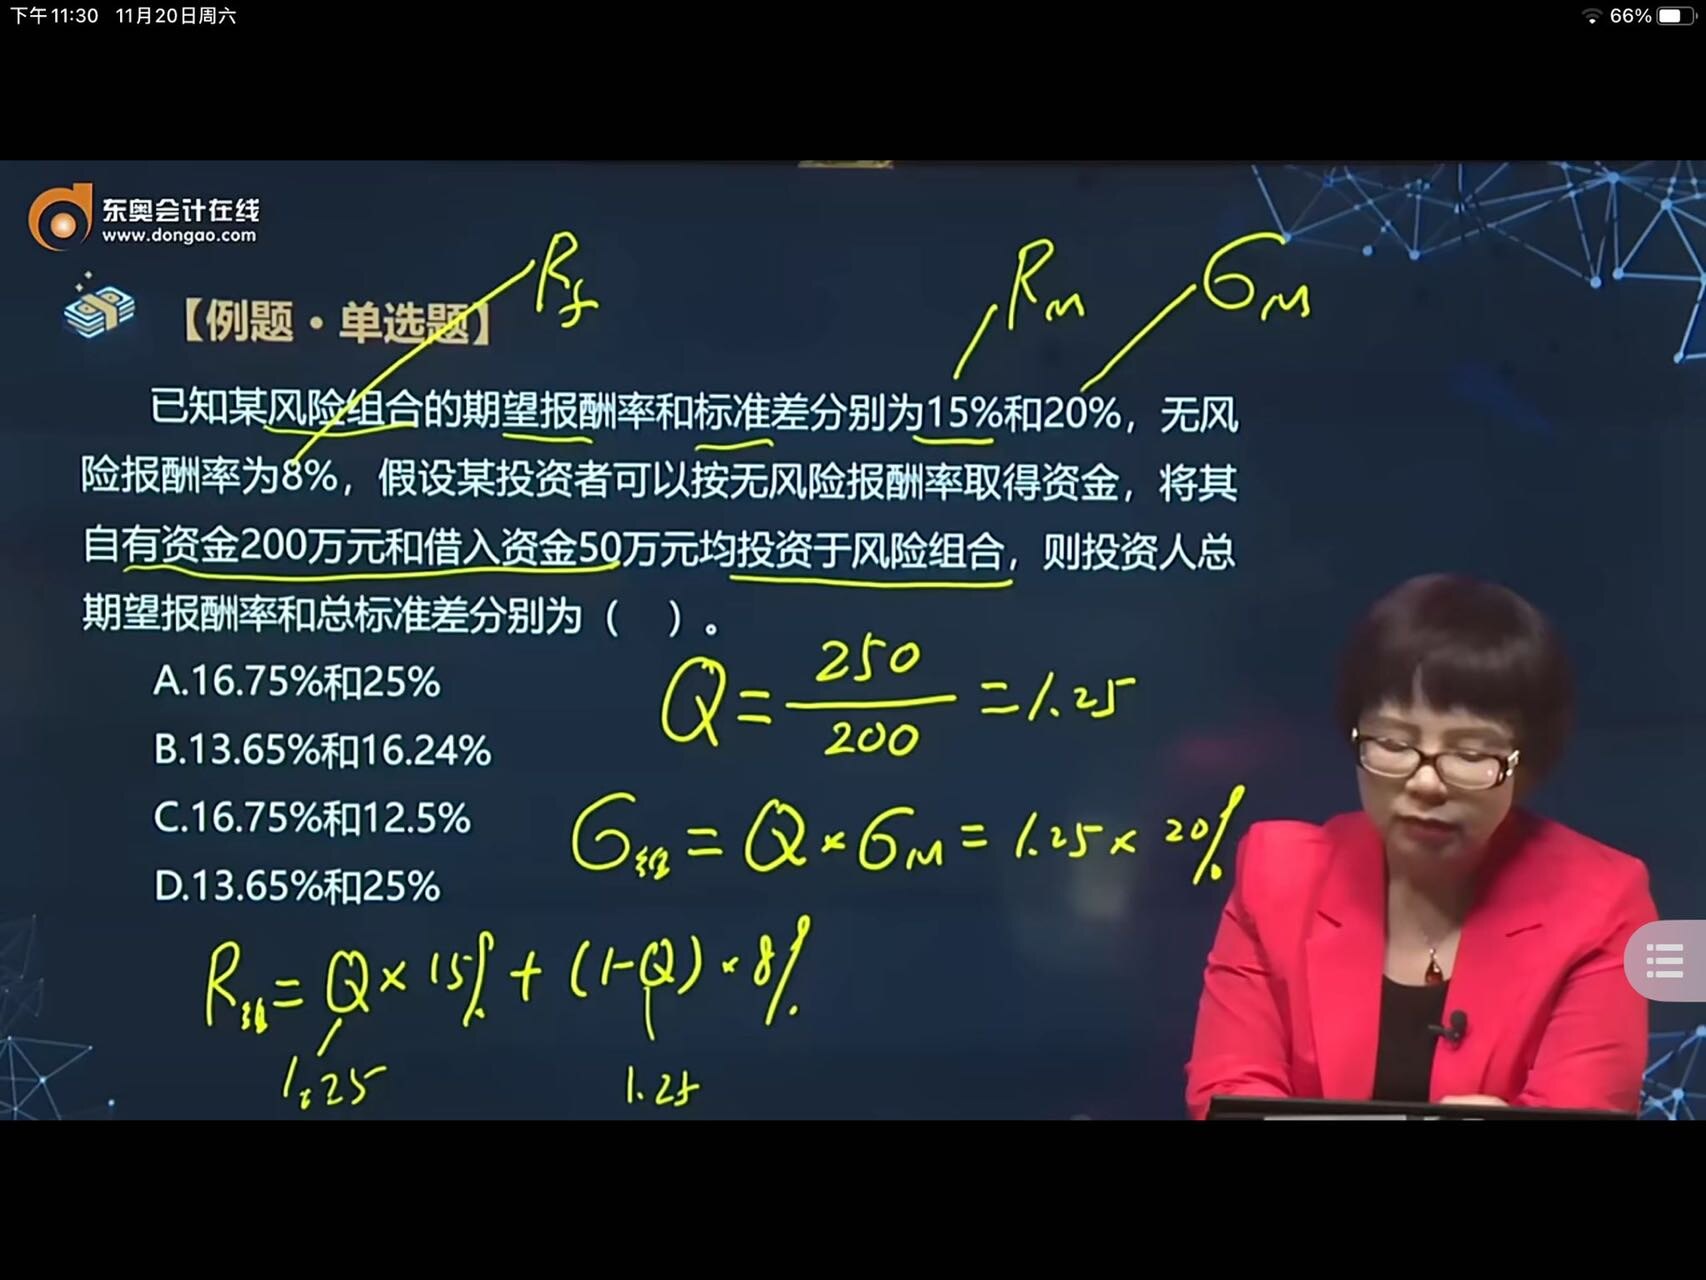 下午11:30 11月20日周六 66%
东奥会计在线
www.dongao.com
Rf
RM
σM
【例题·单选题】
已知某风险组合的期望报酬率和标准差分别为15%和20%，无风
险报酬率为8%，假设某投资者可以按无风险报酬率取得资金，将其
自有资金200万元和借入资金50万元均投资于风险组合，则投资人总
期望报酬率和总标准差分别为（ ）。
A.16.75%和25%
B.13.65%和16.24%
C.16.75%和12.5%
D.13.65%和25%
Q=250/200=1.25
σ组=Q×σM=1.25×20%
R组=Q×15%+(1-Q)×8%
1.25 1.25